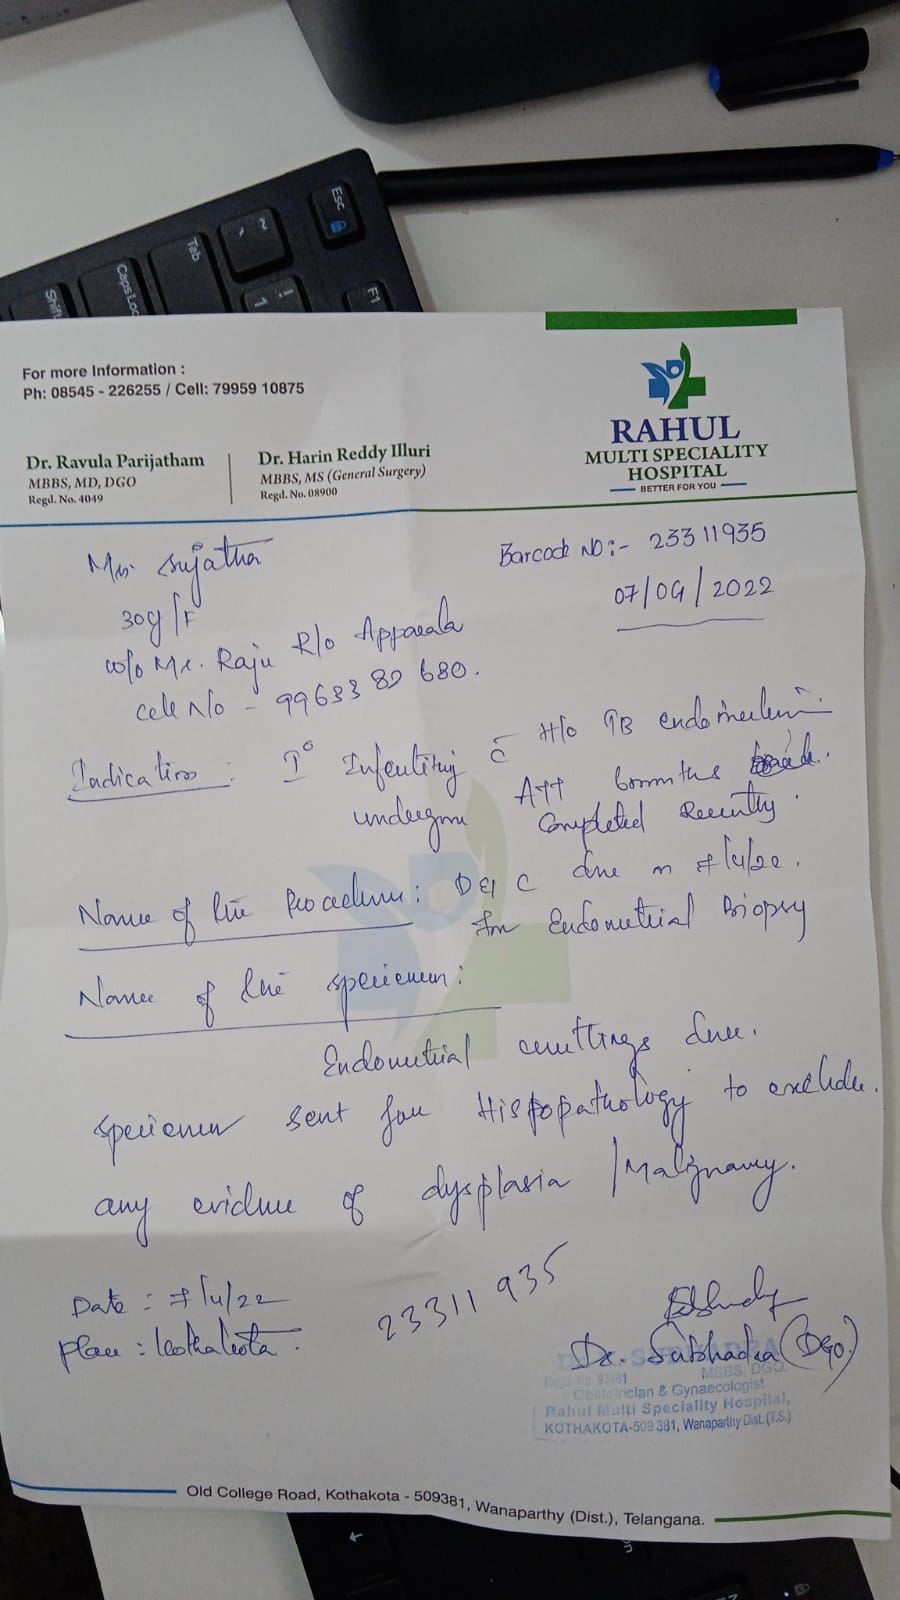 Esc
Tab
Caps Loc
Shift
~
!
1
F1
For more Information :
Ph: 08545 - 226255 / Cell: 79959 10875
RAHUL
MULTI SPECIALITY
HOSPITAL
BETTER FOR YOU
Dr. Ravula Parijatham
MBBS, MD, DGO
Regd. No. 4049
Dr. Harin Reddy Illuri
MBBS, MS (General Surgery)
Regd. No. 08900
Barcode NO:- 23311935
07/04/2022
Mrs. Sujatha
30y/F
w/o Mr. Raju R/o Apparala
Cell No - 99633 82 680.
Indication : I° Infertility c̄ H/o TB endometrium.
undergone ATT 6 months
Completed recently.
Name of the Procedure: D & C done on 7/4/22.
for Endometrial Biopsy
Name of the specimen:
Endometrial curettings done.
specimen sent for Hispopathology to exclude
any evidence of dysplasia /Malignancy.
Date : 7/4/22
Place : Kothakota.
23311935
Dr. Subhadra (DGO)
Regd. No. 83661
MBBS, DGO.
Obstetrician & Gynaecologist
Rahul Multi Speciality Hospital,
KOTHAKOTA-509 381, Wanaparthy Dist.(T.S.)
Old College Road, Kothakota - 509381, Wanaparthy (Dist.), Telangana.